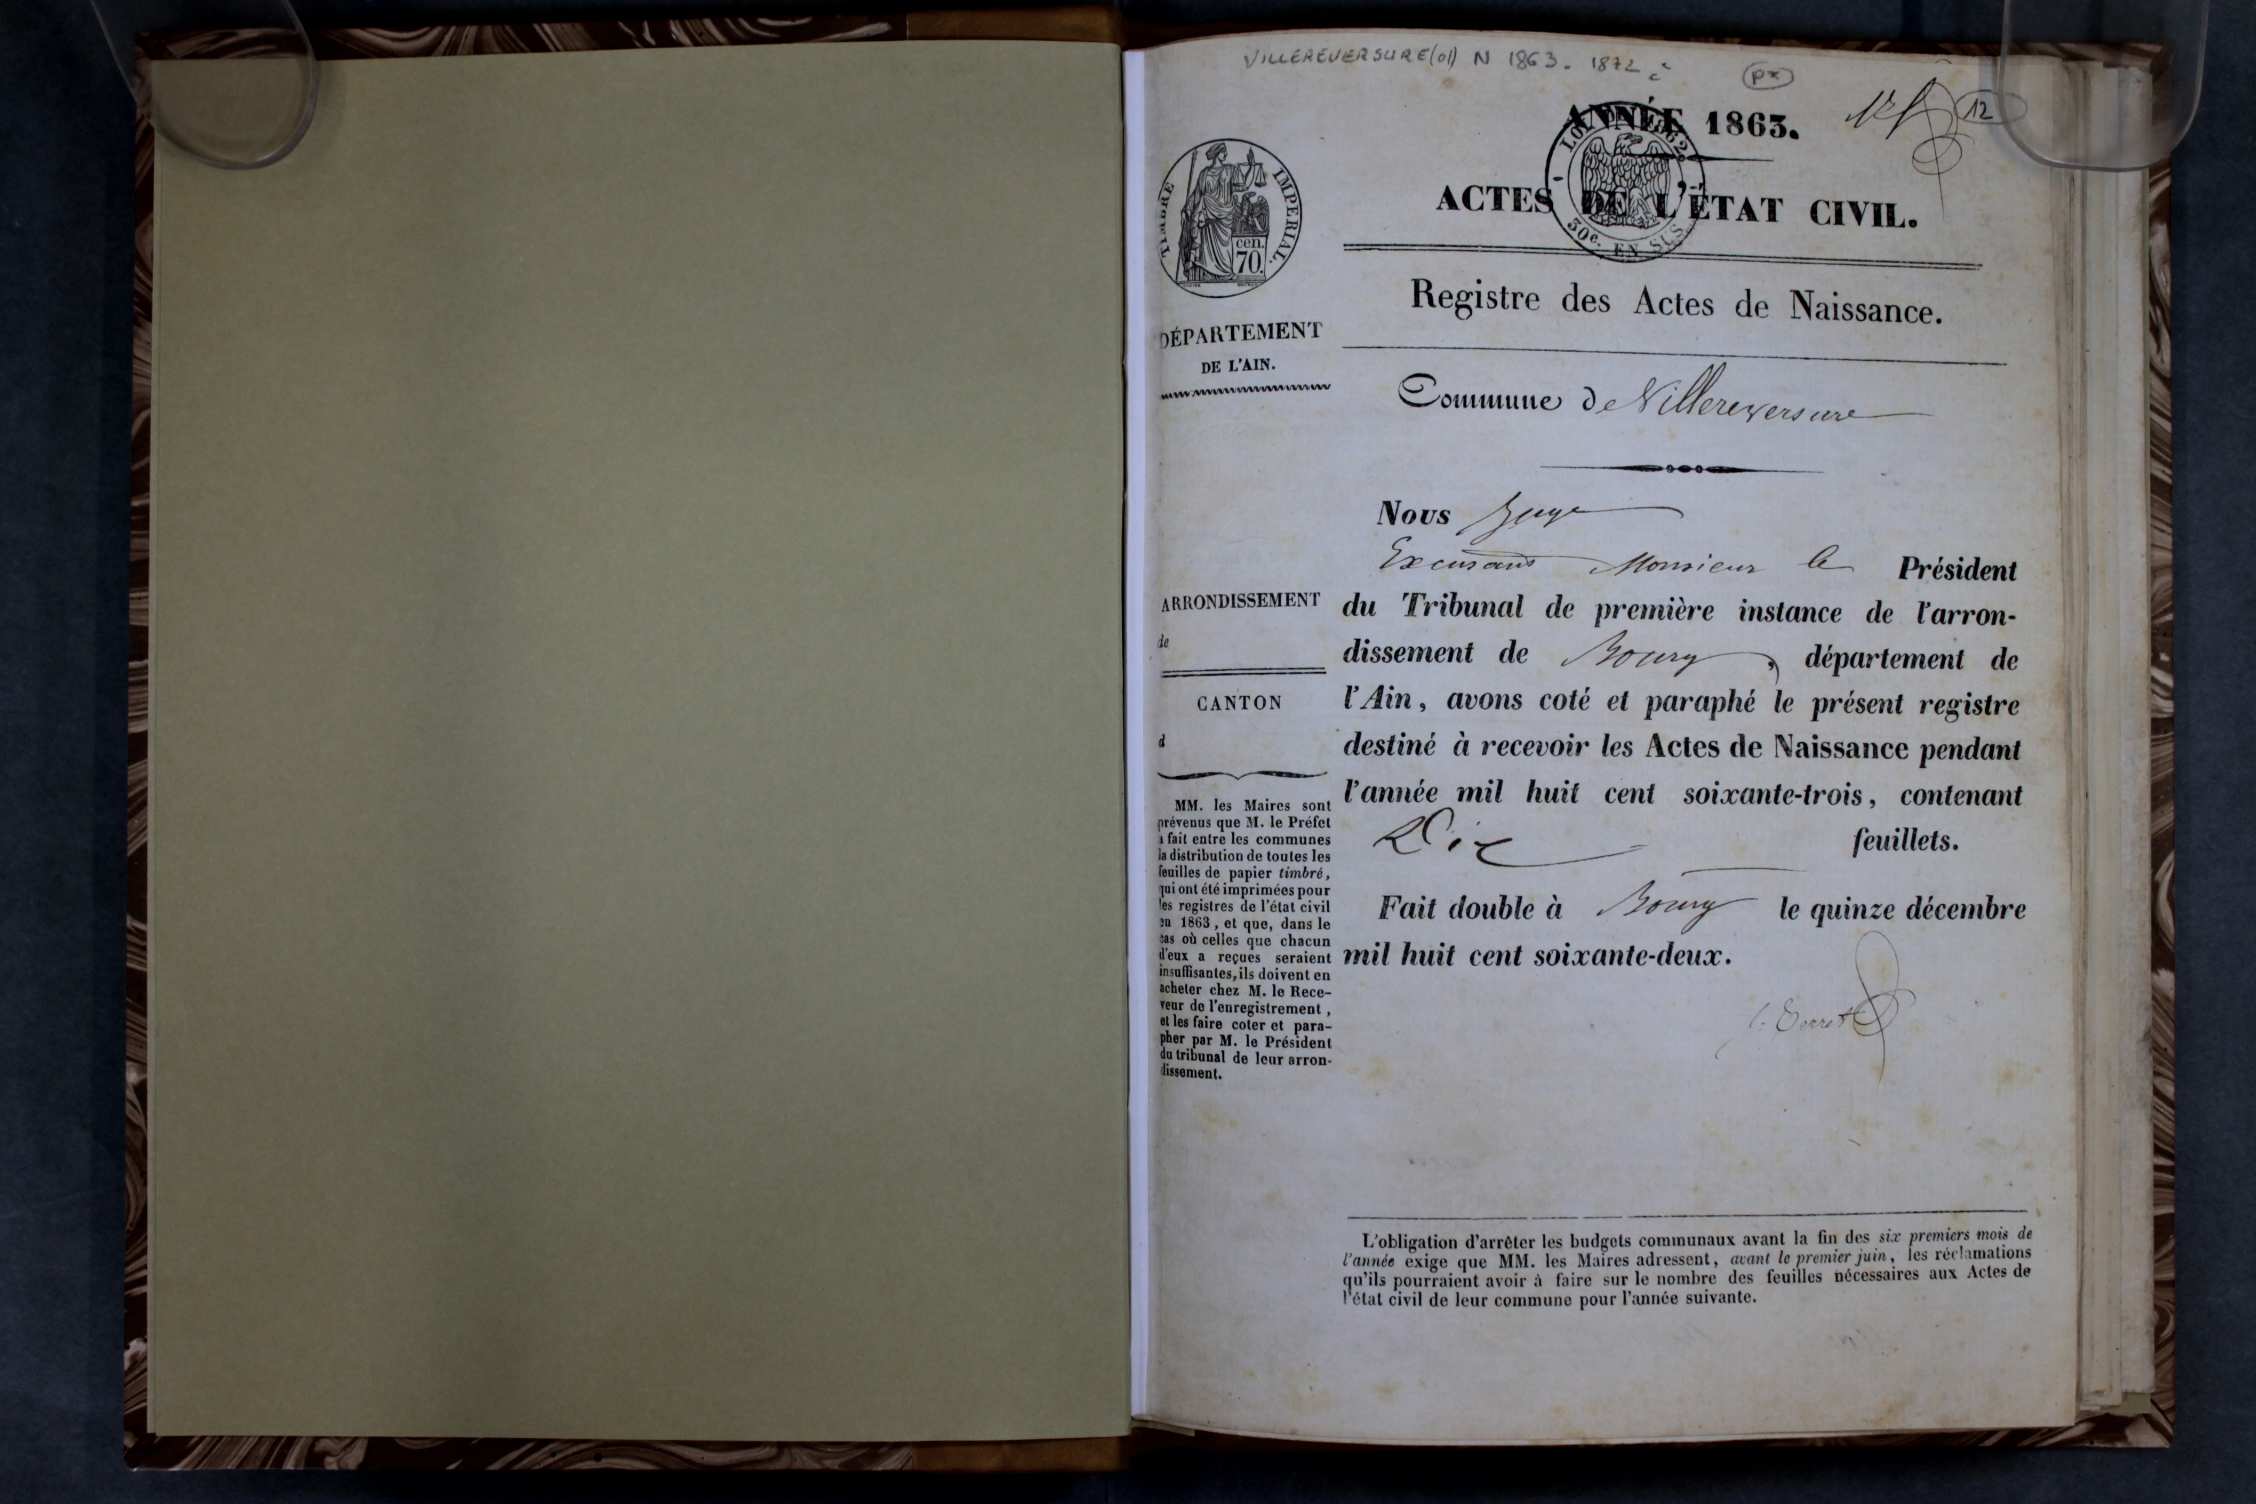 VILLEREVERSURE (01) N 1863. 1872
px
12
ANNÉE 1863.
LOI DE 1862
30c. EN SUS
TIMBRE IMPERIAL.
cen.
70.
ACTES DE L'ÉTAT CIVIL.
Registre des Actes de Naissance.
DÉPARTEMENT
DE L'AIN.
Commune de Villereversure
Nous Juge
Excusant Monsieur le Président
ARRONDISSEMENT
de
CANTON
d
du Tribunal de première instance de l'arron-
dissement de Bourg, département de
l'Ain, avons coté et paraphé le présent registre
destiné à recevoir les Actes de Naissance pendant
l'année mil huit cent soixante-trois, contenant
Dix feuillets.
Fait double à Bourg le quinze décembre
mil huit cent soixante-deux.
MM. les Maires sont
prévenus que M. le Préfet
a fait entre les communes
la distribution de toutes les
feuilles de papier timbré,
qui ont été imprimées pour
les registres de l'état civil
en 1863, et que, dans le
cas où celles que chacun
d'eux a reçues seraient
insuffisantes, ils doivent en
acheter chez M. le Rece-
veur de l'enregistrement,
et les faire coter et para-
pher par M. le Président
du tribunal de leur arron-
dissement.
L'obligation d'arrêter les budgets communaux avant la fin des six premiers mois de
l'année exige que MM. les Maires adressent, avant le premier juin, les réclamations
qu'ils pourraient avoir à faire sur le nombre des feuilles nécessaires aux Actes de
l'état civil de leur commune pour l'année suivante.